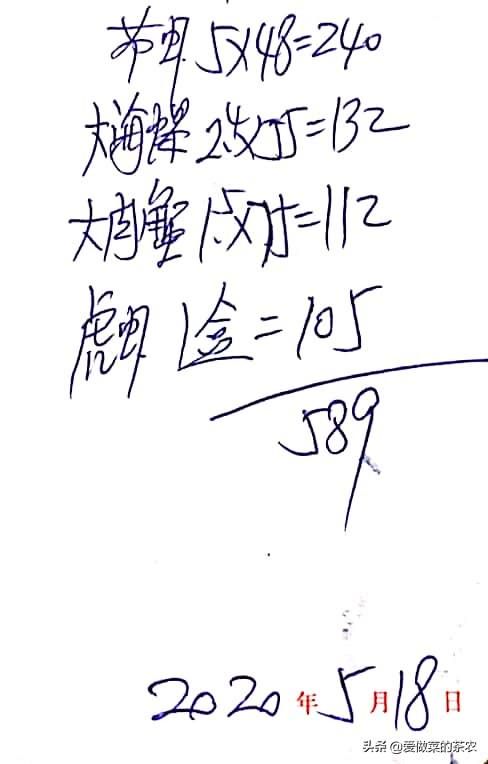 花甲 5×48=240
大海螺 2.4×55=132
大肉蟹 1.5×75=112
虎虾 1盒=105
589
2020年5月18日
头条 @爱做菜的茶农